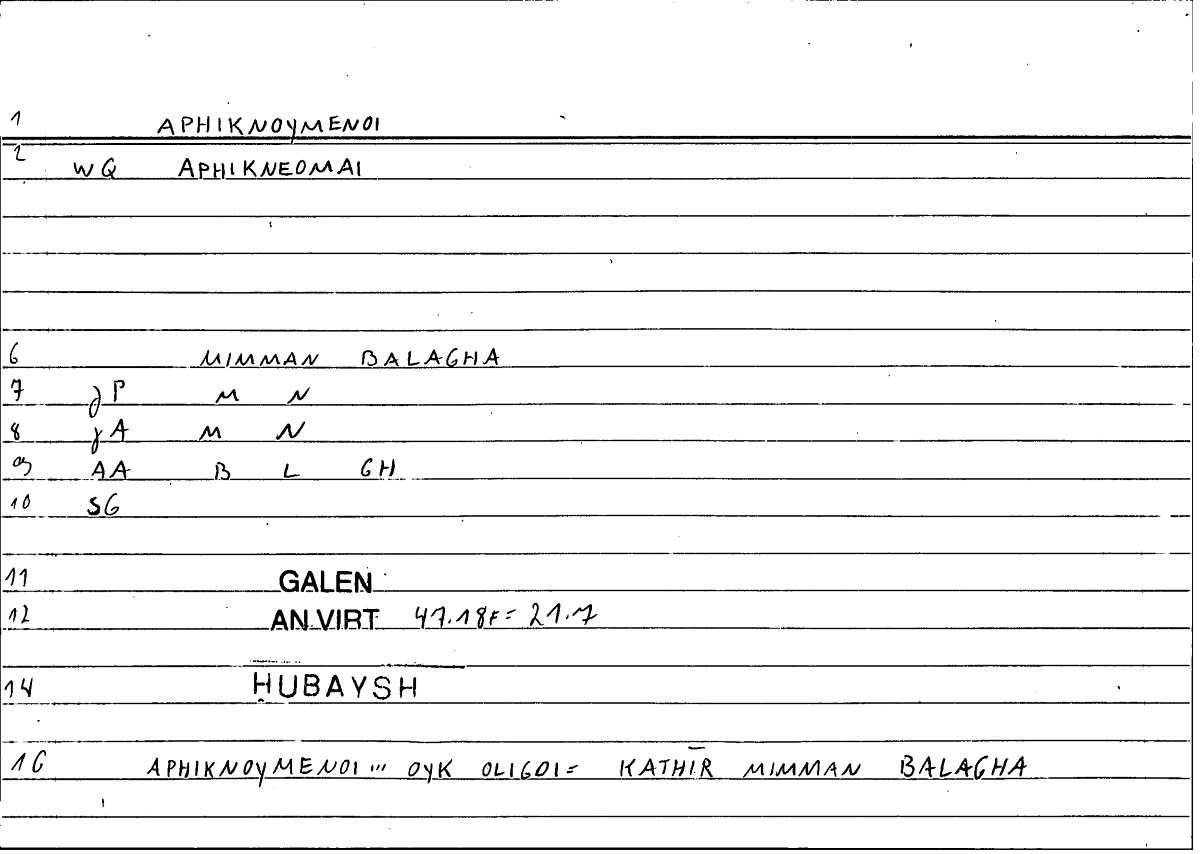 1 APHIKNOYMENOI
2 WQ APHIKNEOMAI
6 MIMMAN BALAGHA
7 γP M N
8 γA M N
9 AA B L GH
10 SG
11 GALEN
12 AN.VIRT 47.18f = 21.7
14 ḤUBAYSH
16 APHIKNOYMENOI ... OYK OLIGOI = KATHĪR MIMMAN BALAGHA